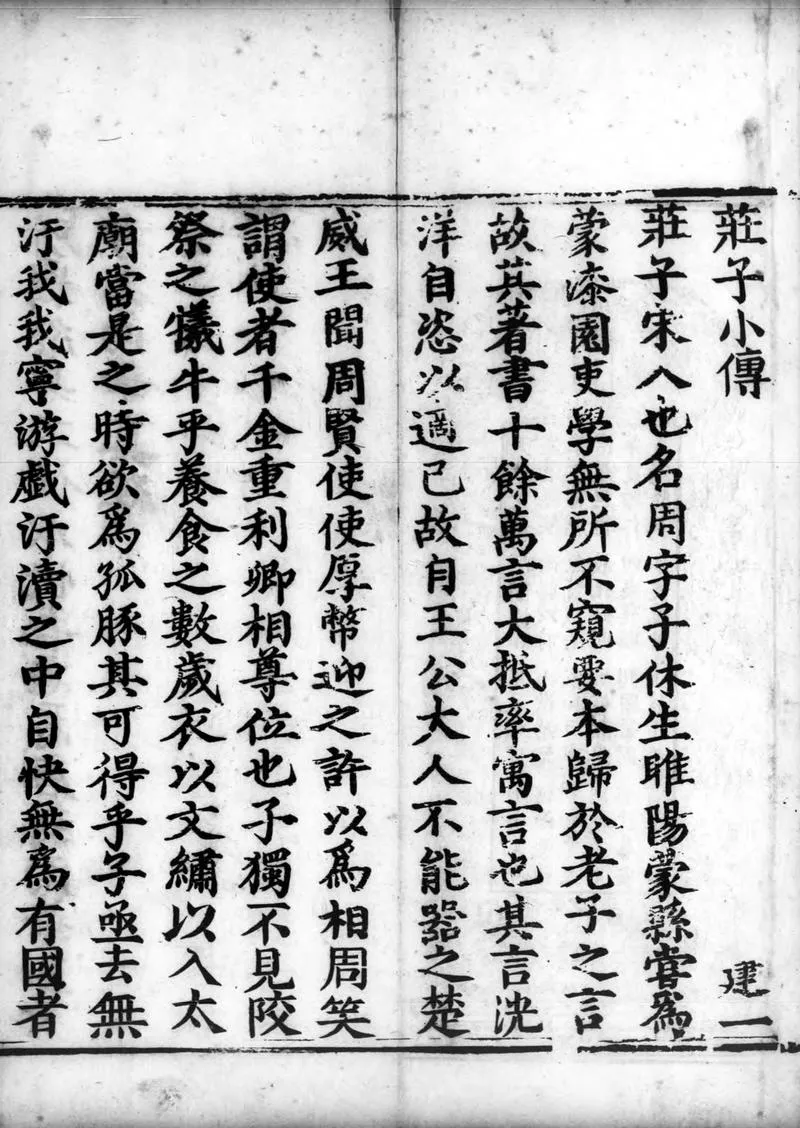 莊子小傳 建一
莊子宋人也名周字子休生睢陽蒙縣嘗爲
蒙漆園吏學無所不窺要本歸於老子之言
故其著書十餘萬言大抵率寓言也其言洸
洋自恣以適己故自王公大人不能器之楚
威王聞周賢使使厚幣迎之許以爲相周笑
謂使者千金重利卿相尊位也子獨不見郊
祭之犧牛乎養食之數歲衣以文繡以入太
廟當是之時欲爲孤豚其可得乎子亟去無
汙我我寧游戲汙瀆之中自快無爲有國者